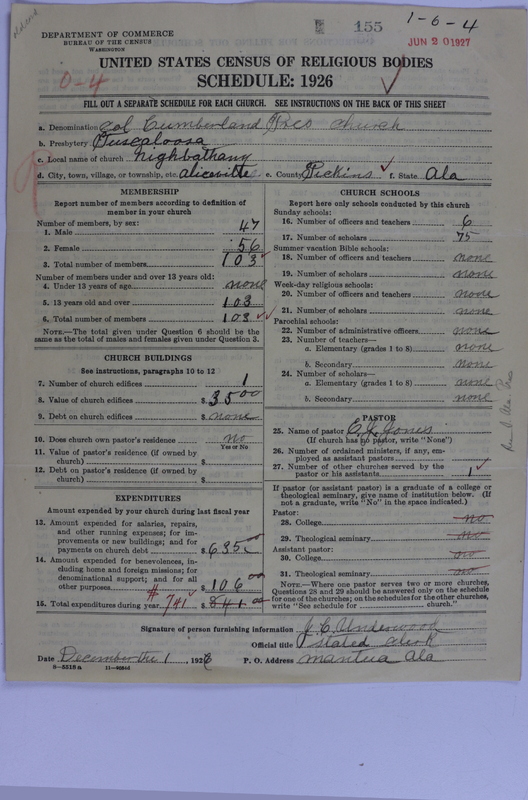 155
1-6-4
DEPARTMENT OF COMMERCE
BUREAU OF THE CENSUS
WASHINGTON
JUN 20 1927
UNITED STATES CENSUS OF RELIGIOUS BODIES
0-4
SCHEDULE: 1926
FILL OUT A SEPARATE SCHEDULE FOR EACH CHURCH. SEE INSTRUCTIONS ON THE BACK OF THIS SHEET
a. Denomination Col Cumberland Pres Church
b. Presbytery Tuscaloosa
c. Local name of church Nighbathany
d. City, town, village, or township, etc. aliceville e. County Pickins f. State Ala
MEMBERSHIP
Report number of members according to definition of
member in your church
Number of members, by sex:
1. Male 47
2. Female 56
3. Total number of members 103
Number of members under and over 13 years old:
4. Under 13 years of age none
5. 13 years old and over 103
6. Total number of members 103
NOTE.—The total given under Question 6 should be the
same as the total of males and females given under Question 3.
CHURCH BUILDINGS
See instructions, paragraphs 10 to 12
7. Number of church edifices 1
8. Value of church edifices $ 35 00
9. Debt on church edifices $ none
10. Does church own pastor's residence no
Yes or No
11. Value of pastor's residence (if owned by
church) $
12. Debt on pastor's residence (if owned by
church) $
EXPENDITURES
Amount expended by your church during last fiscal year
13. Amount expended for salaries, repairs,
and other running expenses; for im-
provements or new buildings; and for
payments on church debt $ 635 00
14. Amount expended for benevolences, in-
cluding home and foreign missions; for
denominational support; and for all
other purposes $ 106 00
15. Total expenditures during year # 741 $ 841 00
CHURCH SCHOOLS
Report here only schools conducted by this church
Sunday schools:
16. Number of officers and teachers 6
17. Number of scholars 75
Summer vacation Bible schools:
18. Number of officers and teachers none
19. Number of scholars none
Week-day religious schools:
20. Number of officers and teachers none
21. Number of scholars none
Parochial schools:
22. Number of administrative officers none
23. Number of teachers—
a. Elementary (grades 1 to 8) none
b. Secondary none
24. Number of scholars—
a. Elementary (grades 1 to 8) none
b. Secondary none
PASTOR
25. Name of pastor Jones
(If church has no pastor, write "None")
26. Number of ordained ministers, if any, em-
ployed as assistant pastors
27. Number of other churches served by the
pastor or his assistants 1
If pastor (or assistant pastor) is a graduate of a college or
theological seminary, give name of institution below. (If
not a graduate, write "No" in the space indicated.)
Pastor:
28. College no
29. Theological seminary no
Assistant pastor:
30. College no
31. Theological seminary no
NOTE.—Where one pastor serves two or more churches,
Questions 28 and 29 should be answered only on the schedule
for one of the churches; on the schedules for the other churches,
write "See schedule for church."
Signature of person furnishing information J. C. Underwood
Official title Stated Clerk
Date December the 1, 1926 P. O. Address Mantua Ala
8-5518a 11-